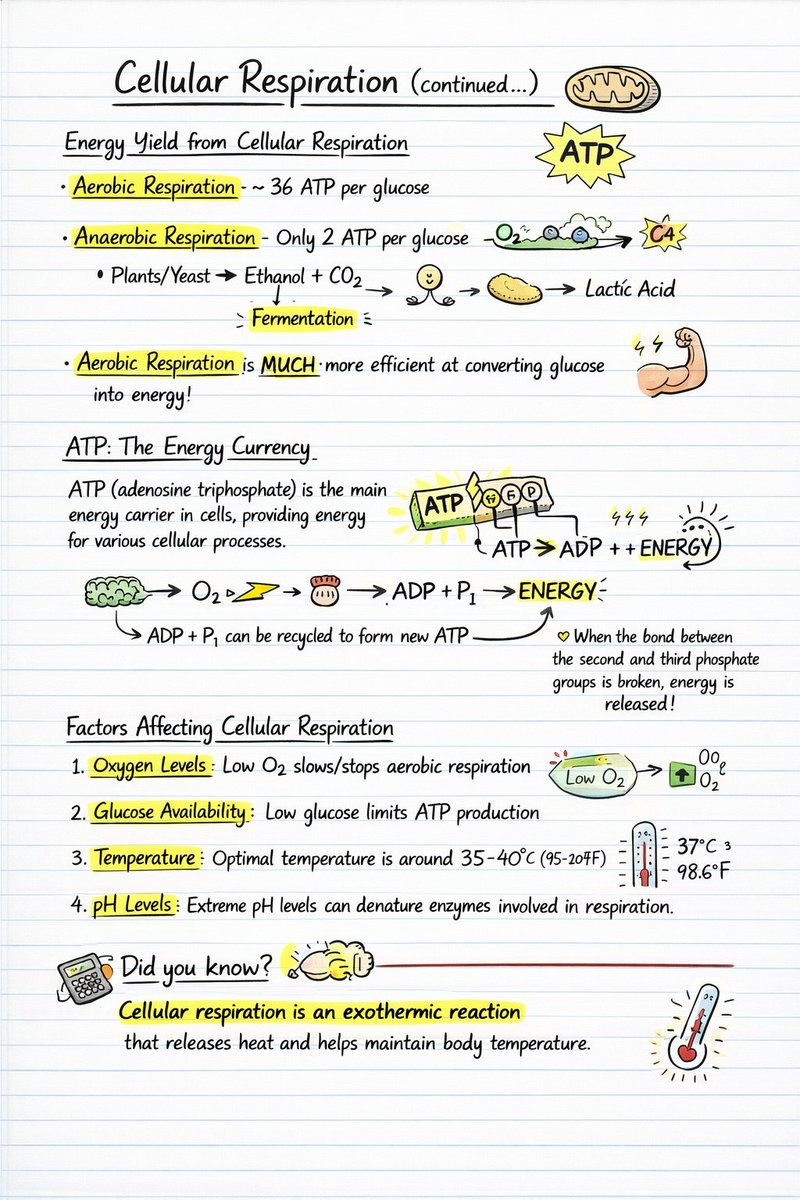 Cellular Respiration (continued...)
Energy Yield from Cellular Respiration
ATP
• Aerobic Respiration - ~ 36 ATP per glucose
• Anaerobic Respiration - Only 2 ATP per glucose
O2
C4
• Plants/Yeast → Ethanol + CO2 → → → Lactic Acid
Fermentation
• Aerobic Respiration is MUCH more efficient at converting glucose
into energy!
ATP: The Energy Currency
ATP (adenosine triphosphate) is the main
energy carrier in cells, providing energy
for various cellular processes.
ATP P
ATP → ADP + + ENERGY
→ O2 → → ADP + PI → ENERGY
ADP + P1 can be recycled to form new ATP
♡ When the bond between
the second and third phosphate
groups is broken, energy is
released!
Factors Affecting Cellular Respiration
1. Oxygen Levels: Low O2 slows/stops aerobic respiration
Low O2 →
O2
2. Glucose Availability: Low glucose limits ATP production
3. Temperature: Optimal temperature is around 35-40°C
37°C
98.6°F
4. pH Levels: Extreme pH levels can denature enzymes involved in respiration.
Did you know?
Cellular respiration is an exothermic reaction
that releases heat and helps maintain body temperature.